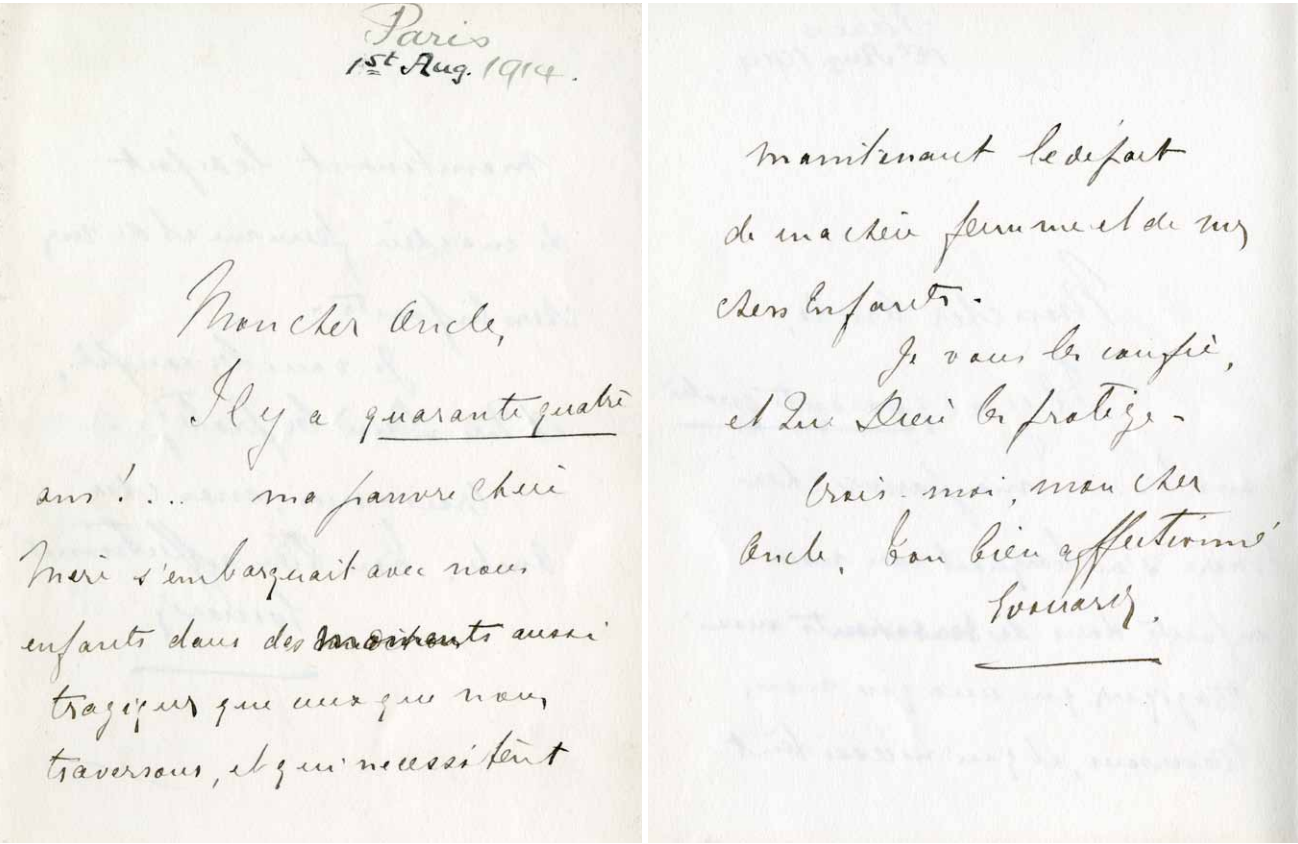 Paris
1st Aug. 1914.
Mon cher Oncle,
Il y a quarante quatre
ans !... ma pauvre chère
Mère s'embarquait avec nous
enfants dans des moments aussi
tragiques que ceux que nous
traversons, et qui necessitent
maintenant le départ
de ma chère femme et de mes
chers Enfants.
Je vous les confie,
et Que Dieu les protège -
Crois-moi, mon cher
Oncle, ton bien affectionné
Edouard.